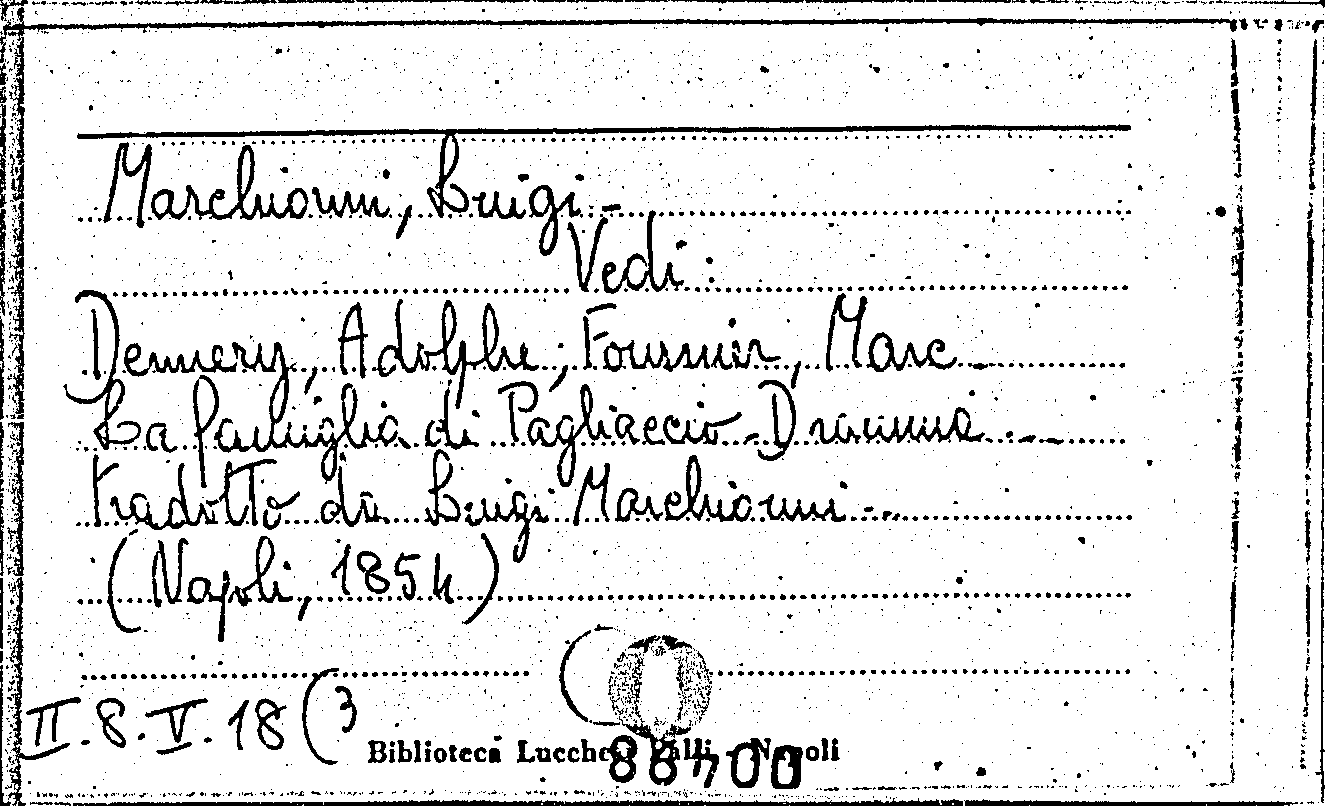 Marchionni, Luigi -
Vedi :
Dennery, Adolphe; Fournier, Marc -
La famiglia di Pagliaccio - Dramma -
tradotto da Luigi Marchionni -
(Napoli, 1854)
II.8.V.18(3
Biblioteca Lucchesi Palli - Napoli
86400